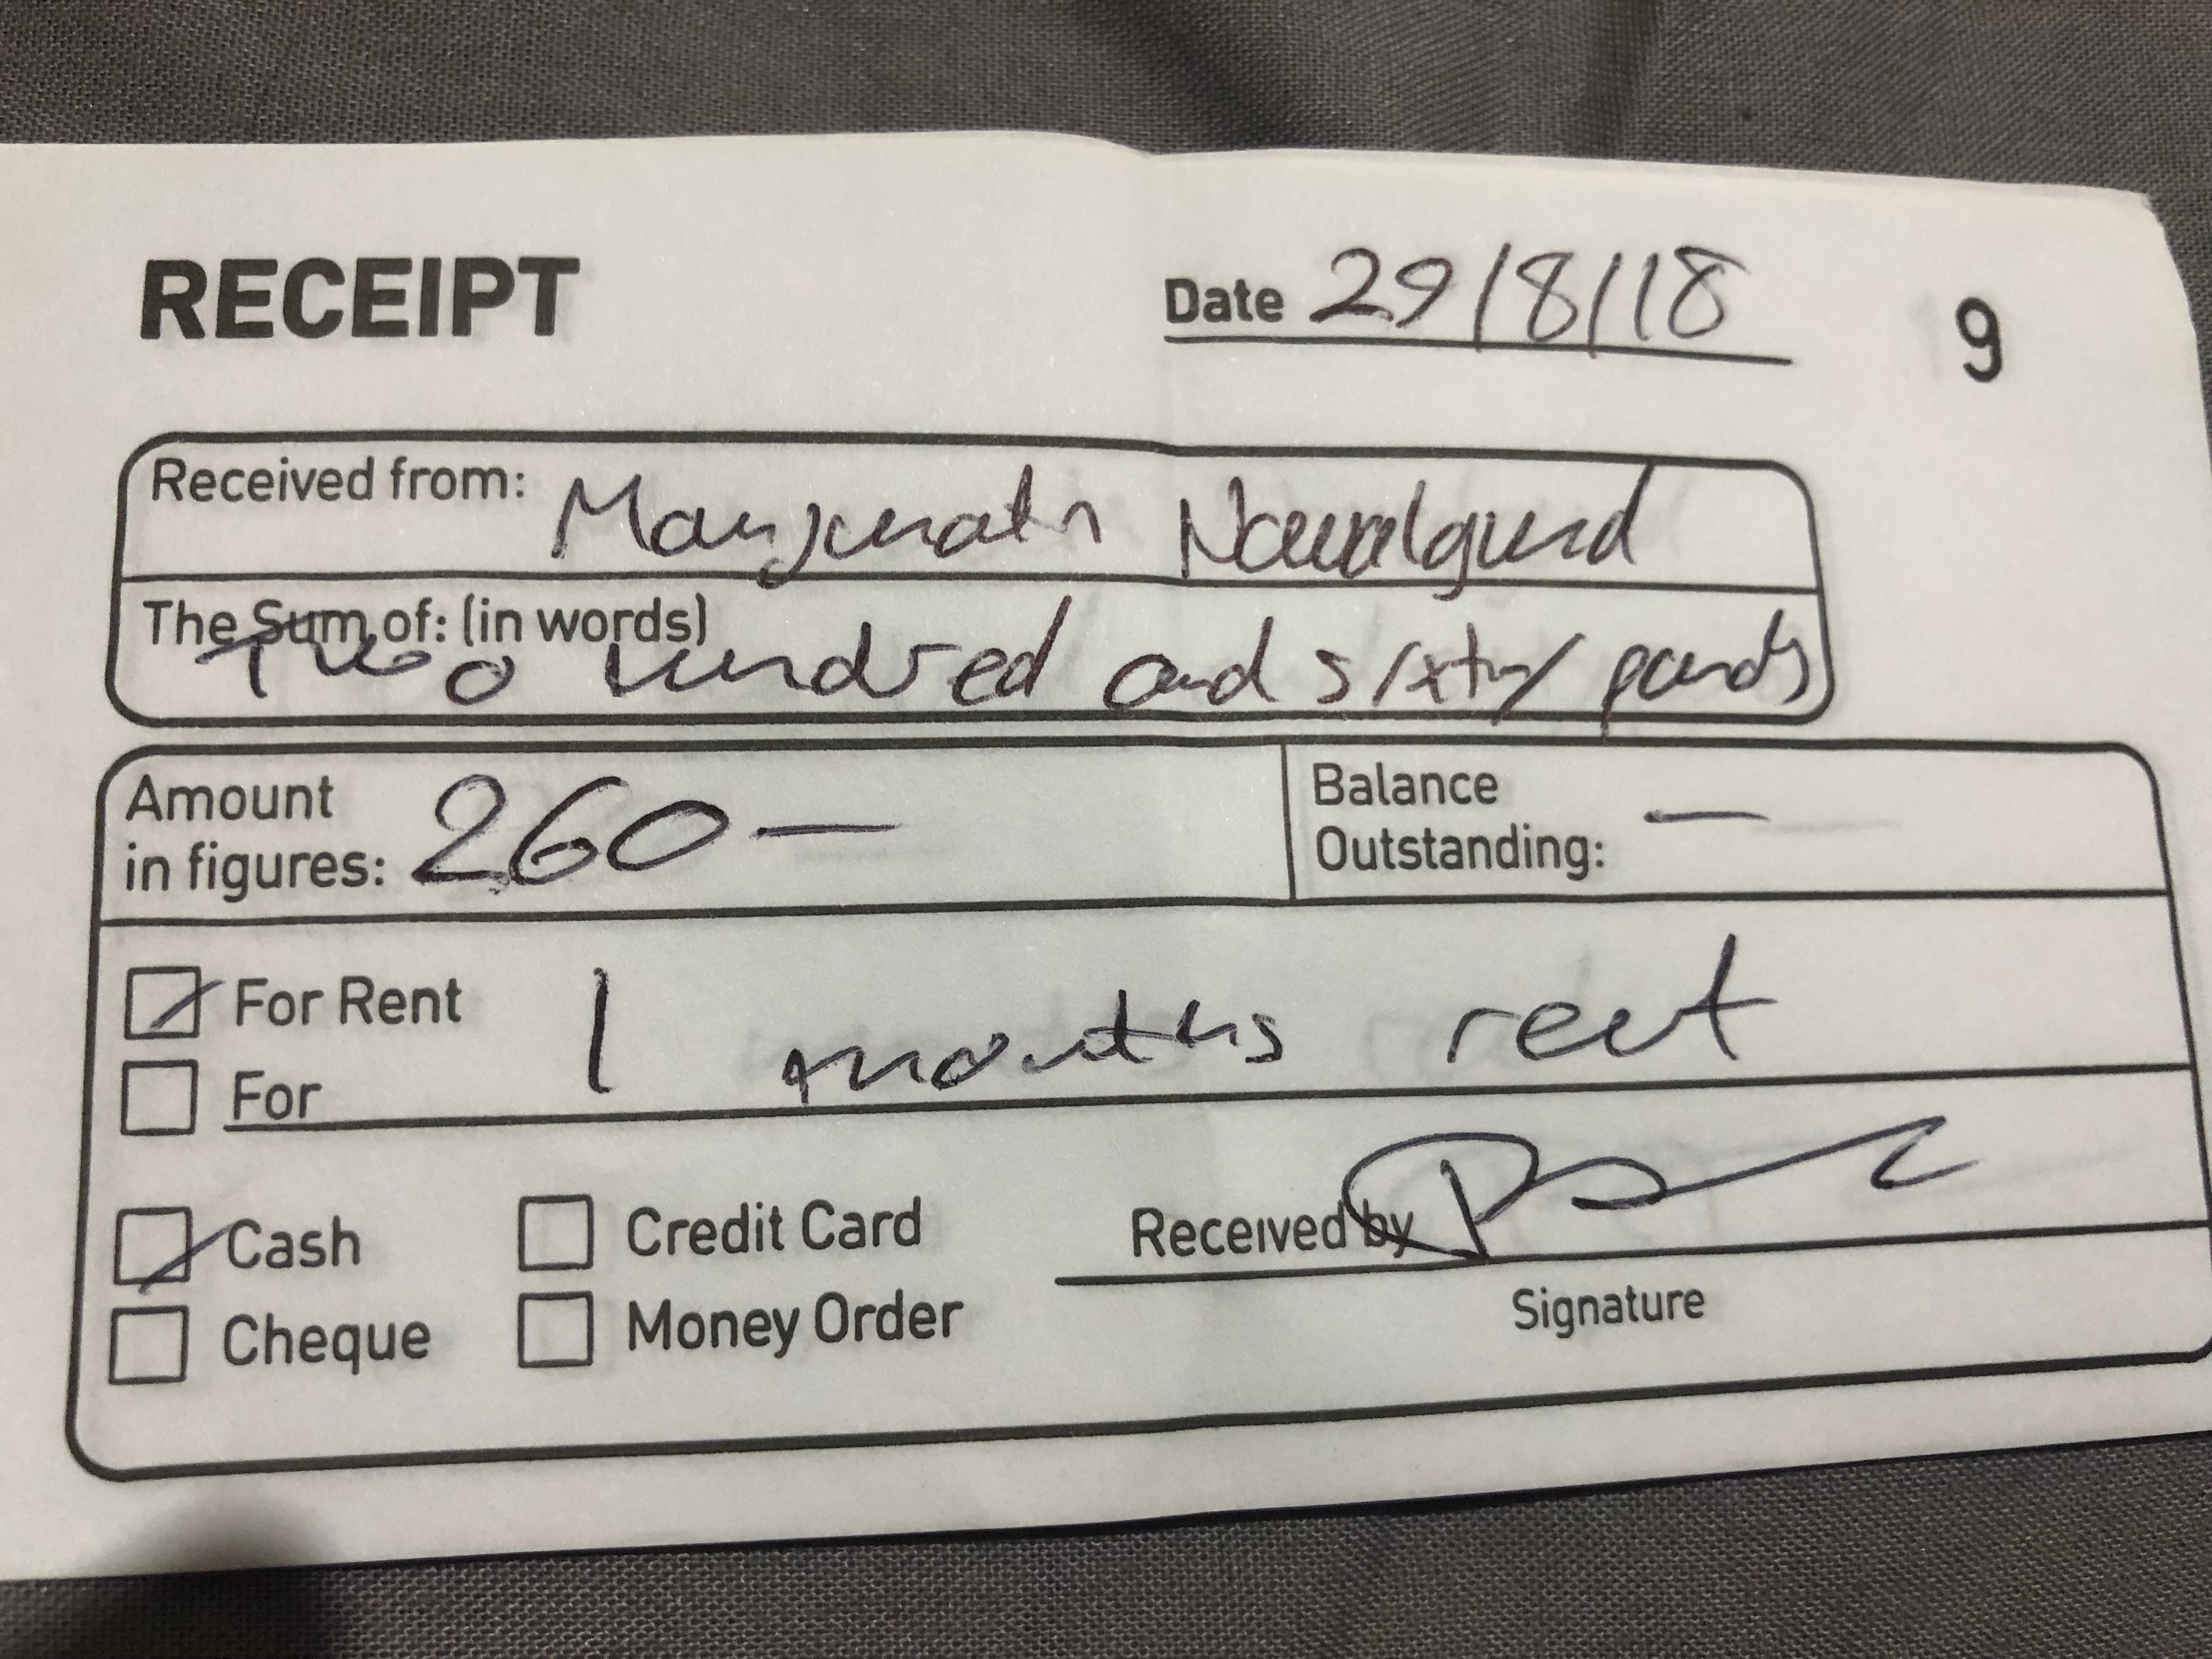 RECEIPT
Date 29/8/18
9
Received from: Manjunath Nawalgund
The Sum of: (in words)
Two hundred and sixty pounds
Amount
in figures: 260 —
Balance
Outstanding: —
For Rent
1 months rent
For
Cash
Credit Card
Received by
Cheque
Money Order
Signature